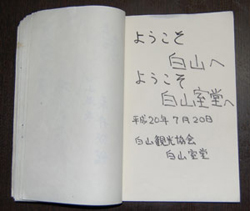 ようこそ
白山へ
ようこそ
白山室堂へ
平成20年7月20日
白山観光協会
白山室堂